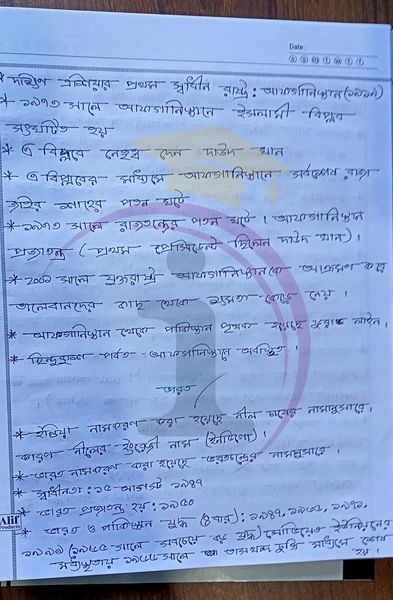 Date :
Ⓢ Ⓢ Ⓜ Ⓣ Ⓦ Ⓣ Ⓕ
* দক্ষিণ এশিয়ার প্রথম স্বাধীন রাষ্ট্র : আফগানিস্তান (১৯১৯)
* ১৯৭৩ সালে আফগানিস্তানে ইসলামী বিপ্লব
সংঘটিত হয়
* এ বিপ্লবে নেতৃত্ব দেন দাউদ খান
* এ বিপ্লবের মাধ্যমে আফগানিস্তানে সর্বশেষ রাজা
জহির শাহের পতন ঘটে
* ১৯৭৩ সালে রাজতন্ত্রের পতন ঘটে । আফগানিস্তান
প্রজাতন্ত্র (প্রথম প্রেসিডেন্ট ছিলেন দাউদ খান) ।
* ২০০১ সালে যুক্তরাষ্ট্র আফগানিস্তানকে আক্রমণ করে
তালেবানদের কাছ থেকে ক্ষমতা কেড়ে নেয় ।
* আফগানিস্তান থেকে পাকিস্তান পৃথক হয়েছে লাইন ।
* হিন্দুকুশ পর্বত আফগানিস্তানে অবস্থিত ।
ভারত
* ইন্ডিয়া নামকরণ করা হয়েছে নীল চাষের নামানুসারে ।
কারণ নীলের ইংরেজী নাম (ইনডিগো) ।
* ভারত নামকরণ করা হয়েছে নামানুসারে ।
* স্বাধীনতা : ১৫ আগস্ট ১৯৪৭
* ভারত প্রজাতন্ত্র হয় : ১৯৫০
* ভারত ও পাকিস্তান যুদ্ধ (৪বার) : ১৯৪৭, ১৯৬৫, ১৯৭১,
১৯৯৯ (১৯৬৫ সালে সবচেয়ে বড় যুদ্ধ) সোভিয়েত ইউনিয়নের
মধ্যস্থতায় ১৯৬৬ সালে তাসখন্দ চুক্তি মাধ্যমে শেষ
হয় ।
Alif
Products